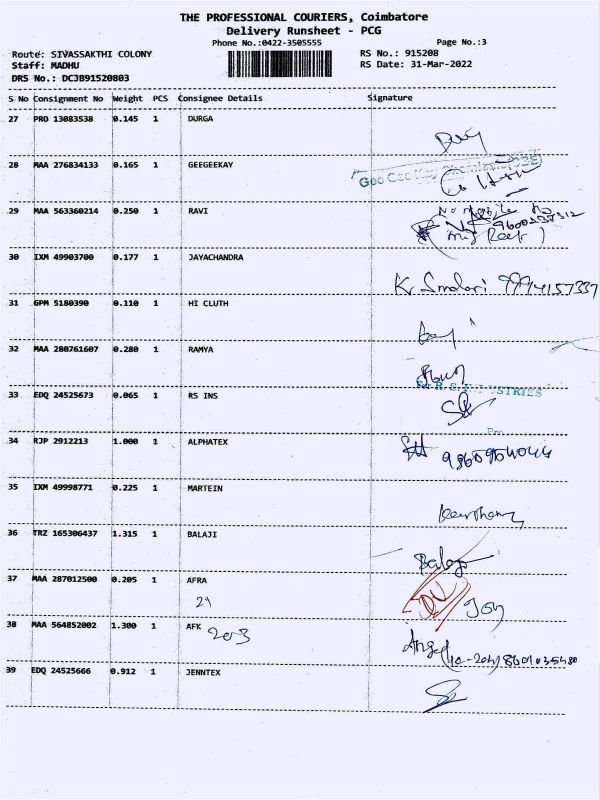 THE PROFESSIONAL COURIERS, Coimbatore
Delivery Runsheet - PCG
Phone No.:0422-3505555
Page No.:3
Route: SIVASSAKTHI COLONY
RS No.: 915208
Staff: MADHU
RS Date: 31-Mar-2022
DRS No.: DCJB91520803
S No Consignment No Weight PCS Consignee Details Signature
27 PRO 13083538 0.145 1 DURGA
28 MAA 276834133 0.165 1 GEEGEEKAY
29 MAA 563360214 0.250 1 RAVI
30 IXM 49903700 0.177 1 JAYACHANDRA
9994157337
31 GPM 5180390 0.110 1 HI CLUTH
32 MAA 280761607 0.280 1 RAMYA
33 EDQ 24525673 0.065 1 RS INS
34 RJP 2912213 1.000 1 ALPHATEX
35 IXM 49998771 0.225 1 MARTEIN
36 TRZ 165306437 1.315 1 BALAJI
Balaji
37 MAA 287012500 0.205 1 AFRA
21
38 MAA 564852002 1.300 1 AFK 2003
39 EDQ 24525666 0.912 1 JENNTEX